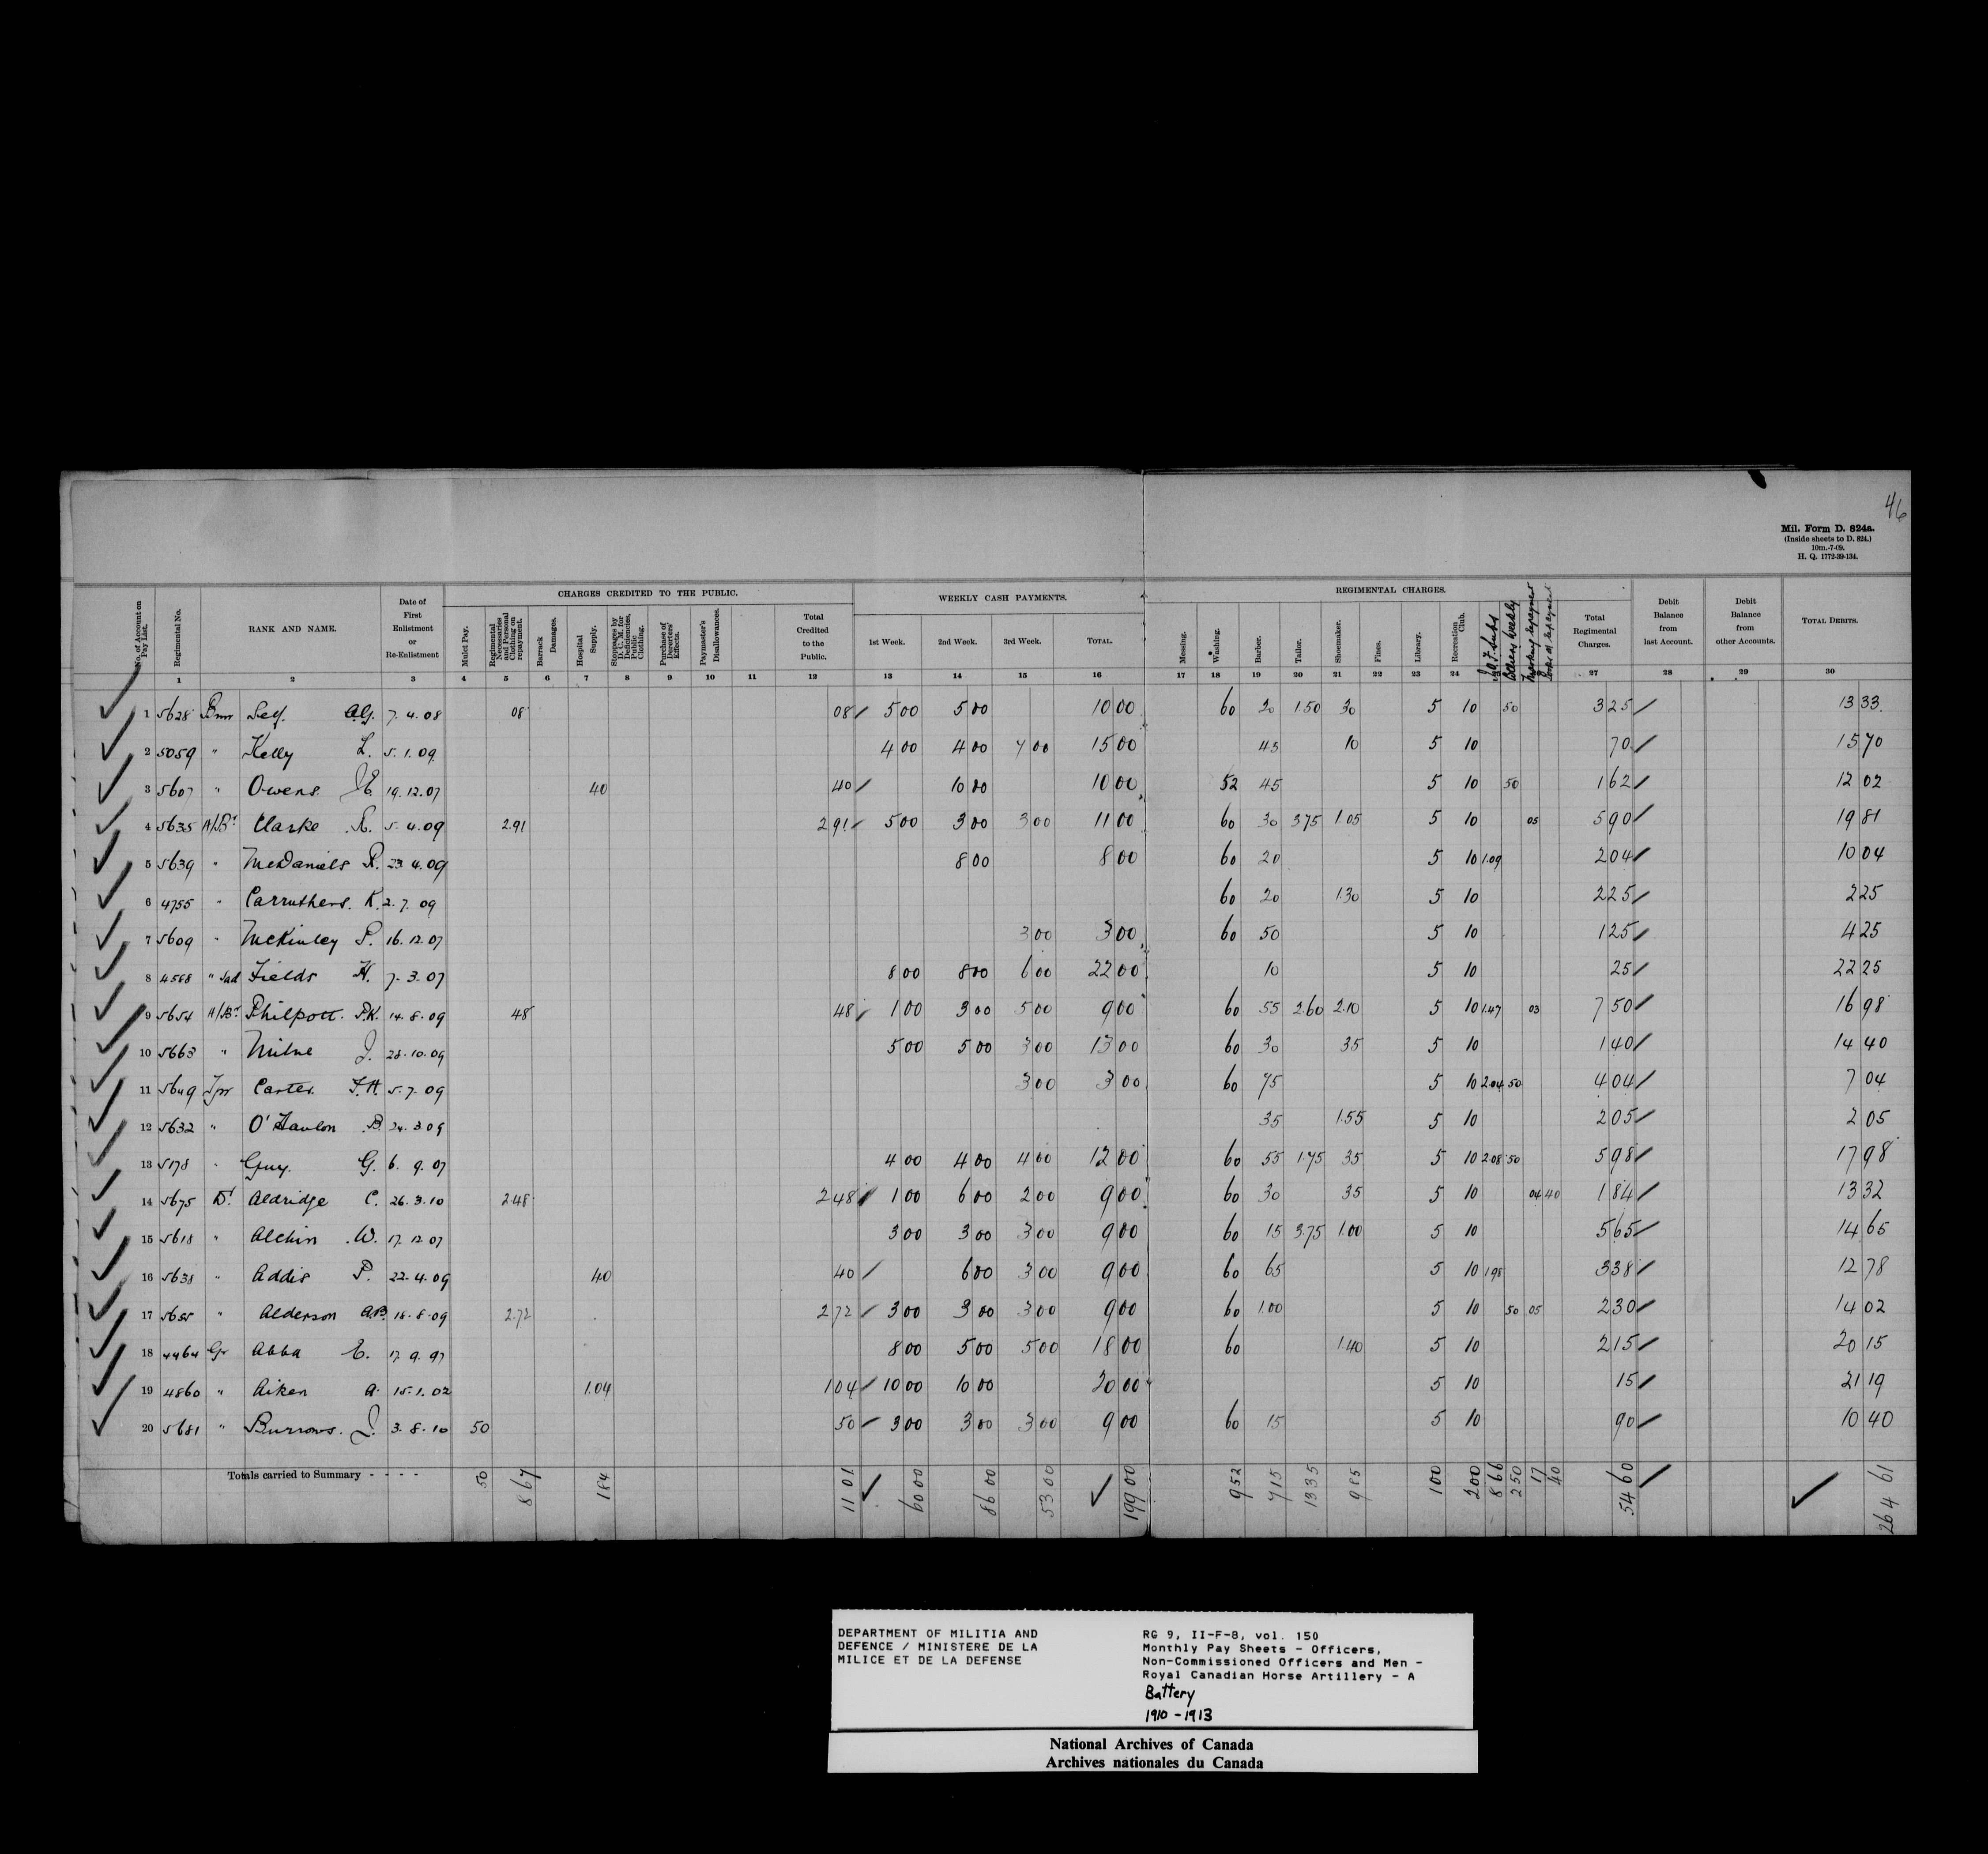 46
Mil. Form D. 824a.
(Inside sheets to D. 824.)
10m.-7-09.
H. Q. 1772-39-134.
CHARGES CREDITED TO THE PUBLIC. WEEKLY CASH PAYMENTS. REGIMENTAL CHARGES.
No. of Account on Pay List. Regimental No. RANK AND NAME. Date of First Enlistment or Re-Enlistment Mulct Pay. Regimental Necessaries and Personal Clothing on repayment. Barrack Damages. Hospital Supply. Stoppages by D. C. M. for Deficiencies, Public Clothing. Purchase of Deserters' Effects. Paymaster's Disallowances. Total Credited to the Public. 1st Week. 2nd Week. 3rd Week. TOTAL. Messing. Washing. Barber. Tailor. Shoemaker. Fines. Library. Recreation Club. Total Regimental Charges. Debit Balance from last Account. Debit Balance from other Accounts. TOTAL DEBITS.
1 2 3 4 5 6 7 8 9 10 11 12 13 14 15 16 17 18 19 20 21 22 23 24 27 28 29 30
1 5628 Bmr Self. 7.4.08 08 08 5 00 5 00 10 00 60 20 1.50 30 5 10 50 3 25 13 33
2 5059 " Kelly L. 5.1.09 4 00 4 00 7 00 15 00 45 10 5 10 70 15 70
3 5607 " Owens J.E. 19.12.07 40 40 10 00 10 00 52 45 5 10 50 1 62 12 02
4 5635 A/Br Clarke R. 5.4.09 2.91 2 91 5 00 3 00 3 00 11 00 60 30 3.75 1.05 5 10 05 5 90 19 81
5 5639 " McDaniels R. 23.4.09 8 00 8 00 60 20 5 10 1.09 2 04 10 04
6 4755 " Carruthers. K. 2.7.09 60 20 1.30 5 10 2 25 2 25
7 5609 " McKinley P. 16.12.07 3 00 3 00 60 50 5 10 1 25 4 25
8 4588 " Sad Fields H. 7.3.07 8 00 8 00 6 00 22 00 10 5 10 25 22 25
9 5654 A/Br Philpott. P.K. 14.8.09 48 48 1 00 3 00 5 00 9 00 60 55 2.60 2.10 5 10 1.47 03 7 50 16 98
10 5663 " Milne J. 28.10.09 5 00 5 00 3 00 13 00 60 30 35 5 10 1 40 14 40
11 5649 Tpr Carter. F.H. 5.7.09 3 00 3 00 60 75 5 10 2.04 50 4 04 7 04
12 5632 " O'Hanlon B. 24.3.09 35 1.55 5 10 2 05 2 05
13 5178 " Guy. G. 6.9.07 4 00 4 00 4 00 12 00 60 55 1.75 35 5 10 2.08 50 5 98 17 98
14 5675 Dr Aldridge C. 26.3.10 2.48 2 48 1 00 6 00 2 00 9 00 60 30 35 5 10 04 40 1 84 13 32
15 5618 " Alchin W. 17.12.07 3 00 3 00 3 00 9 00 60 15 3.75 1.00 5 10 5 65 14 65
16 5638 " Addis P. 22.4.09 40 40 6 00 3 00 9 00 60 65 5 10 1.98 3 38 12 78
17 5655 " Alderson A.B. 18.8.09 2.72 2 72 3 00 3 00 3 00 9 00 60 1.00 5 10 50 05 2 30 14 02
18 4464 Gr Abba E. 17.9.97 8 00 5 00 5 00 18 00 60 1.40 5 10 2 15 20 15
19 4860 " Aiken A. 15.1.02 1.04 1 04 10 00 10 00 20 00 5 10 15 21 19
20 5681 " Burrows. J. 3.8.10 50 50 3 00 3 00 3 00 9 00 60 15 5 10 90 10 40
Totals carried to Summary - - - - 50 8 67 1 84 11 01 60 00 86 00 53 00 199 00 9 52 7 15 13 35 9 85 1 00 2 00 8 66 2 50 17 40 54 60 264 61
DEPARTMENT OF MILITIA AND
DEFENCE / MINISTERE DE LA
MILICE ET DE LA DEFENSE
RG 9, II-F-8, vol. 150
Monthly Pay Sheets - Officers,
Non-Commissioned Officers and Men -
Royal Canadian Horse Artillery - A
Battery
1910 - 1913
National Archives of Canada
Archives nationales du Canada